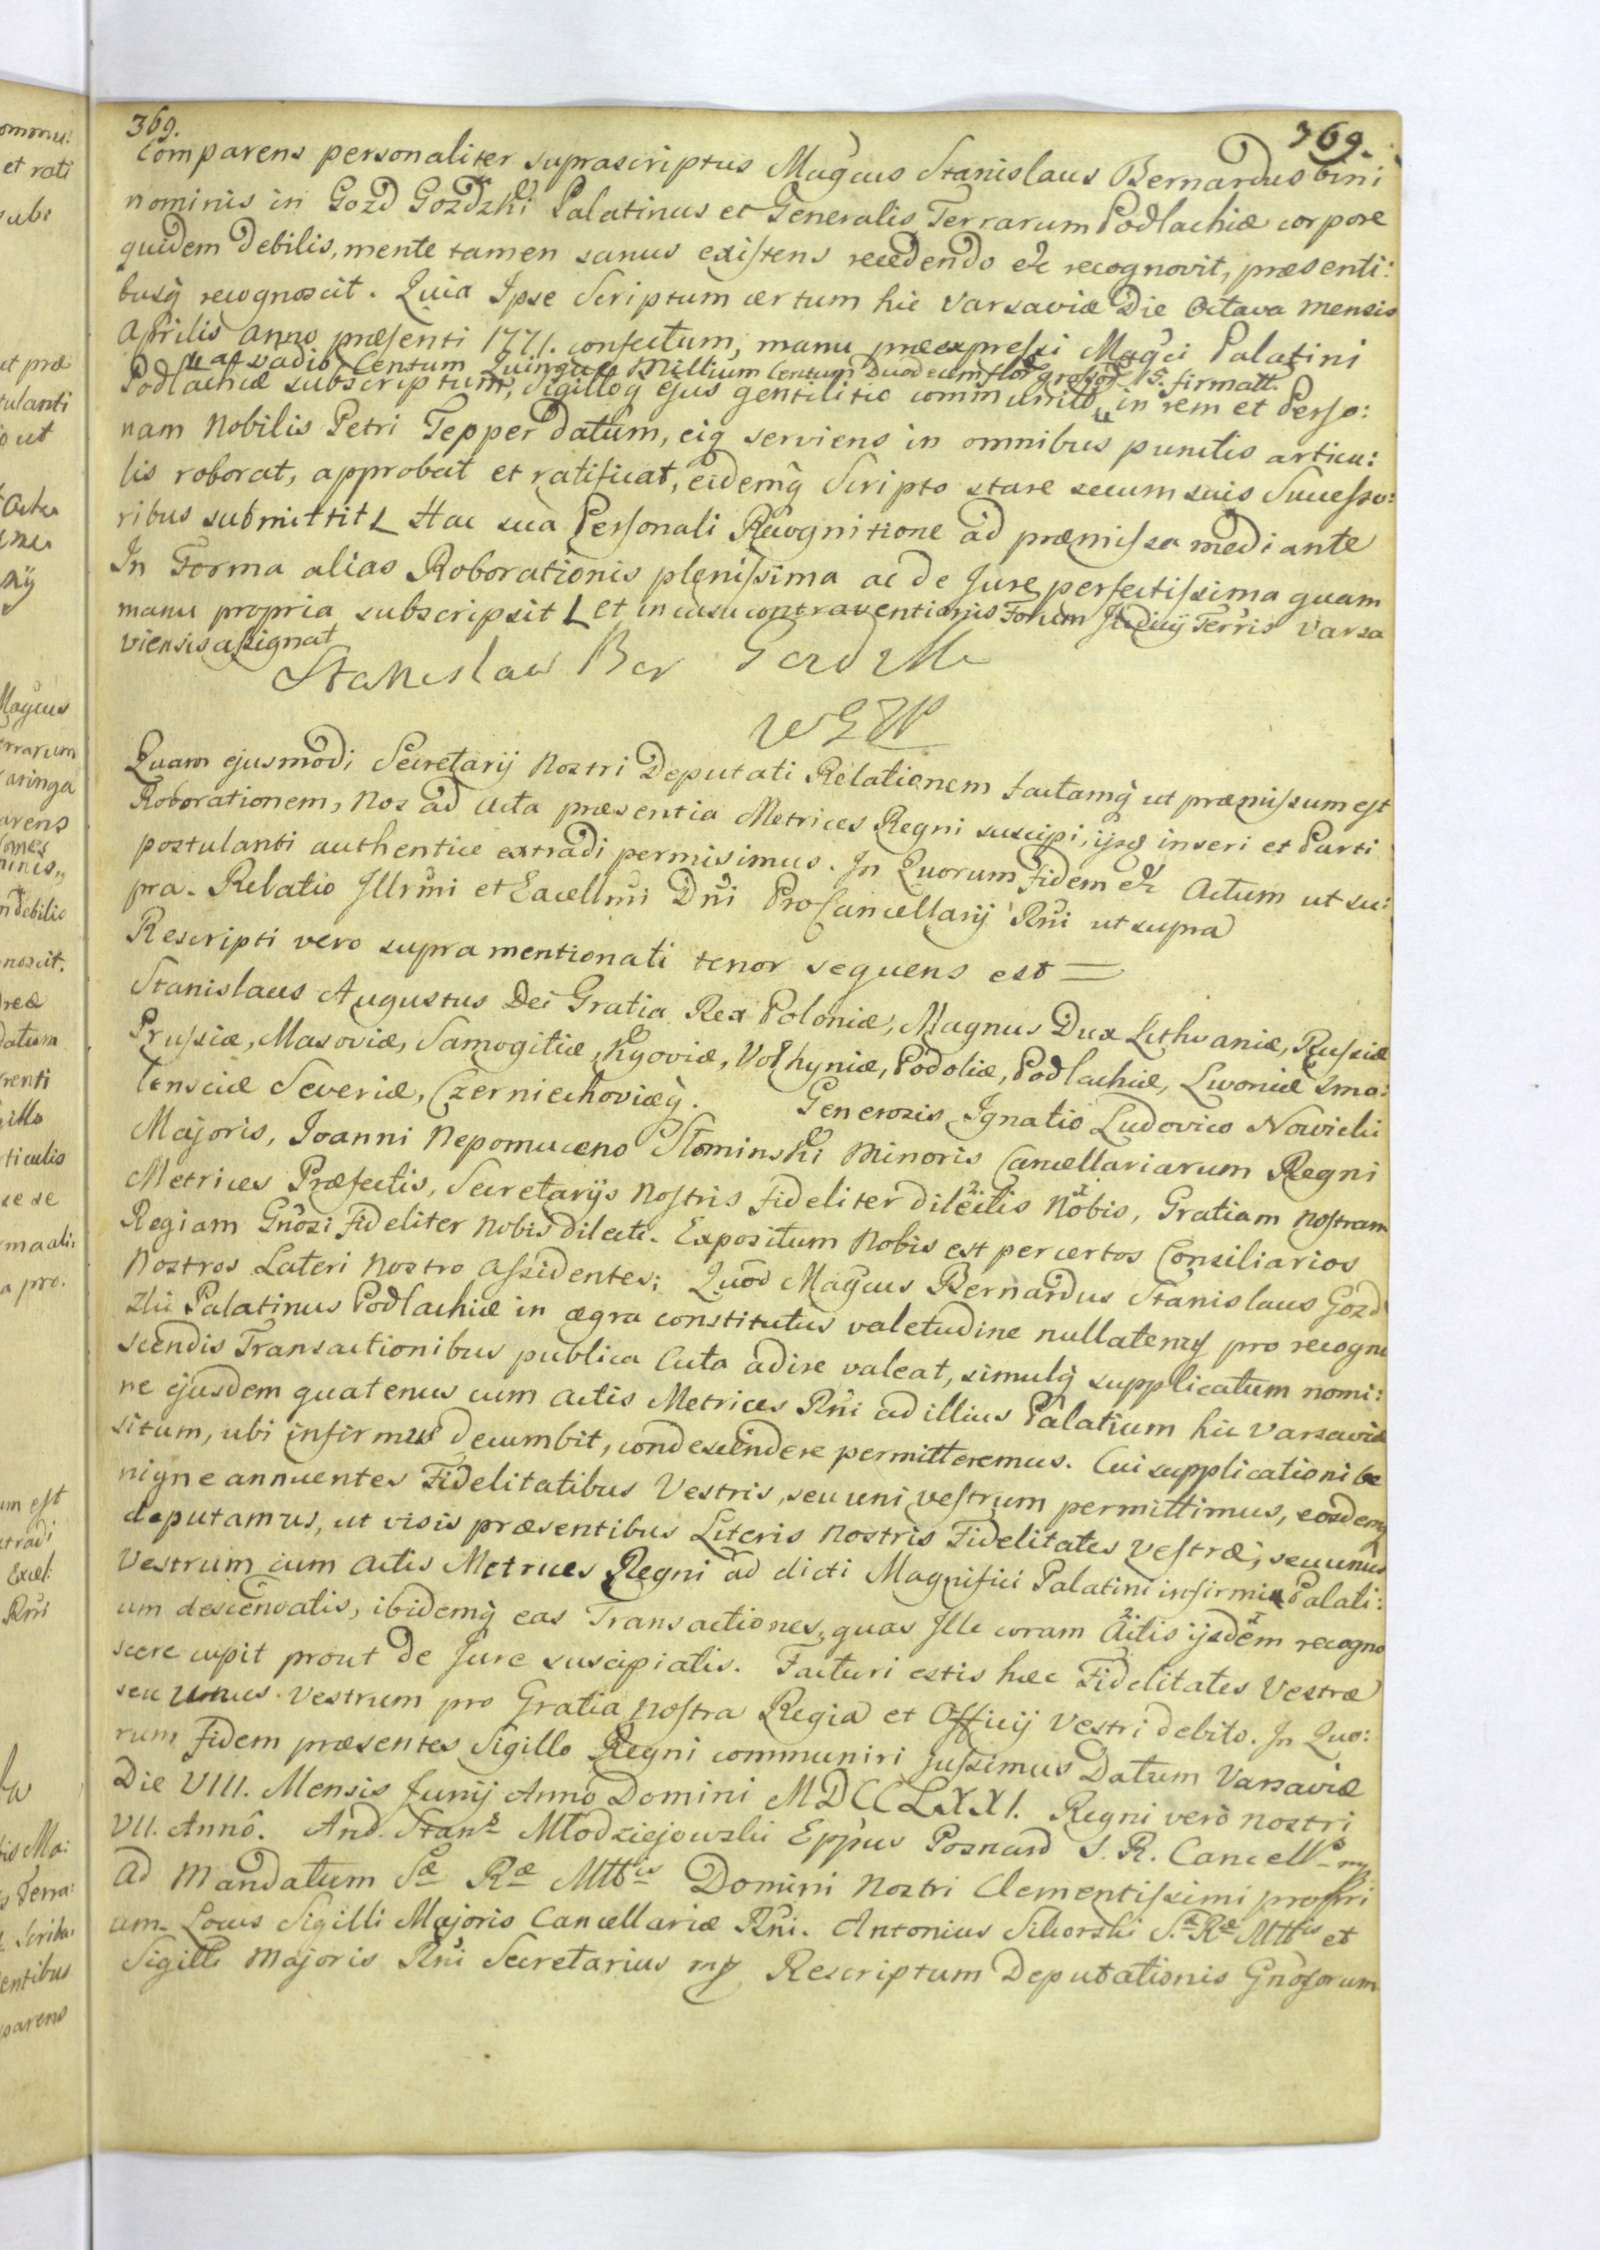 369. 369.
Comparens personaliter suprascriptus Magcus Stanislaus Bernardus bini
nominis in Gozd Gozdzki Palatinus et Generalis Terrarum Podlachiæ corpore
quidem debilis, mente tamen sanus existens recedendo etc recognovit, præsenti:
busq recognoscit. Quia Ipse Scriptum certum hic Varsaviæ Die Octava mensis
Aprilis anno præsenti 1771. confectum, manu præexpressi Magci Palatini
ac vadio Centum Quinque Millium Centum Duodecim flor grossor 15. firmatt.
Podlachiæ subscriptum, Sigilloq ejus gentilitio communito in rem et Perso:
nam Nobilis Petri Tepper datum, eiq serviens in omnibus punctis articu:
lis roborat, approbat et ratificat, eidemq Scripto stare secum suis Successo:
ribus submittit L Hac sua Personali Recognitione ad præmissa mediante
In Forma alias Roborationis plenissima ac de Jure perfectissima quam
manu propria subscripsit L et in casu contraventionis Forum Judicij Terris Varsa
viensis assignat
Stanislaw Ber Gozdzki
WGZP
Quam ejusmodi Secretarij Nostri Deputati Relationem factamq ut præmissum est
Roborationem, Nos ad Acta præsentia Metrices Regni suscipi, ijsq inseri et Parti
postulanti authentice extradi permisimus. In Quorum Fidem etc Actum ut su:
pra. Relatio Illrmi et Excellmi Dni ProCancellarij Rni ut supra
Rescripti vero supra mentionati tenor sequens est =
Stanislaus Augustus Dei Gratia Rex Poloniæ, Magnus Dux Lithvaniæ, Russiæ
Prussiæ, Masoviæ, Samogitiæ, Kyoviæ, Volhyniæ, Podoliæ, Podlachiæ, Livoniæ Smo:
lensciæ Severiæ, Czerniechoviæq. Generosis Ignatio Ludovico Nowicki
Majoris, Joanni Nepomuceno Słominski Minoris Cancellariarum Regni
Metrices Præfectis, Secretarijs Nostris Fideliter dilectis Nobis, Gratiam Nostram
Regiam Gnosi Fideliter Nobis dilecti. Expositum Nobis est per certos Consiliarios
Nostros Lateri Nostro Assidentes; Quod Magcus Bernardus Stanislaus Gozd
zki Palatinus Podlachiæ in ægra constitutus valetudine nullatenus pro recogno
scendis Transactionibus publica Acta adire valeat, simulq supplicatum nomi:
ne ejusdem quatenus cum Actis Metrices Rni ad illius Palatium hic Varsaviæ
situm, ubi infirmus decumbit, condescendere permitteremus. Cui supplicationi be
nigne annuentes Fidelitatibus Vestris, seu uni vestrum permittimus, eosdemq
deputamus, ut visis præsentibus Literis Nostris Fidelitates vestræ, seu unus
Vestrum cum Actis Metrices Regni ad dicti Magnifici Palatini infirmi Palati:
um descendatis, ibidemq eas Transactiones, quas Ille coram Actis ijsdem recogno
scere cupit prout de Jure suscipiatis. Facturi estis hæc Fidelitates Vestræ
seu Unus Vestrum pro Gratia Nostra Regia et Officij Vestri debito. In Quo:
rum Fidem præsentes Sigillo Regni communiri jussimus Datum Varsaviæ
Die VIII. Mensis Junij Anno Domini MDCCLXXI. Regni verò Nostri
VII. Annô. And. Stans Młodziejowski Eppus Posnans S. R. Cancells mp
Ad Mandatum Sæ Ræ Mttis Domini Nostri Clementissimi propri
um. Locus Sigilli Majoris Cancellariæ Rni. Antonius Sikorski Sæ Ræ Mttis et
Sigilli Majoris Rni Secretarius mp Rescriptum Deputationis Gnosorum